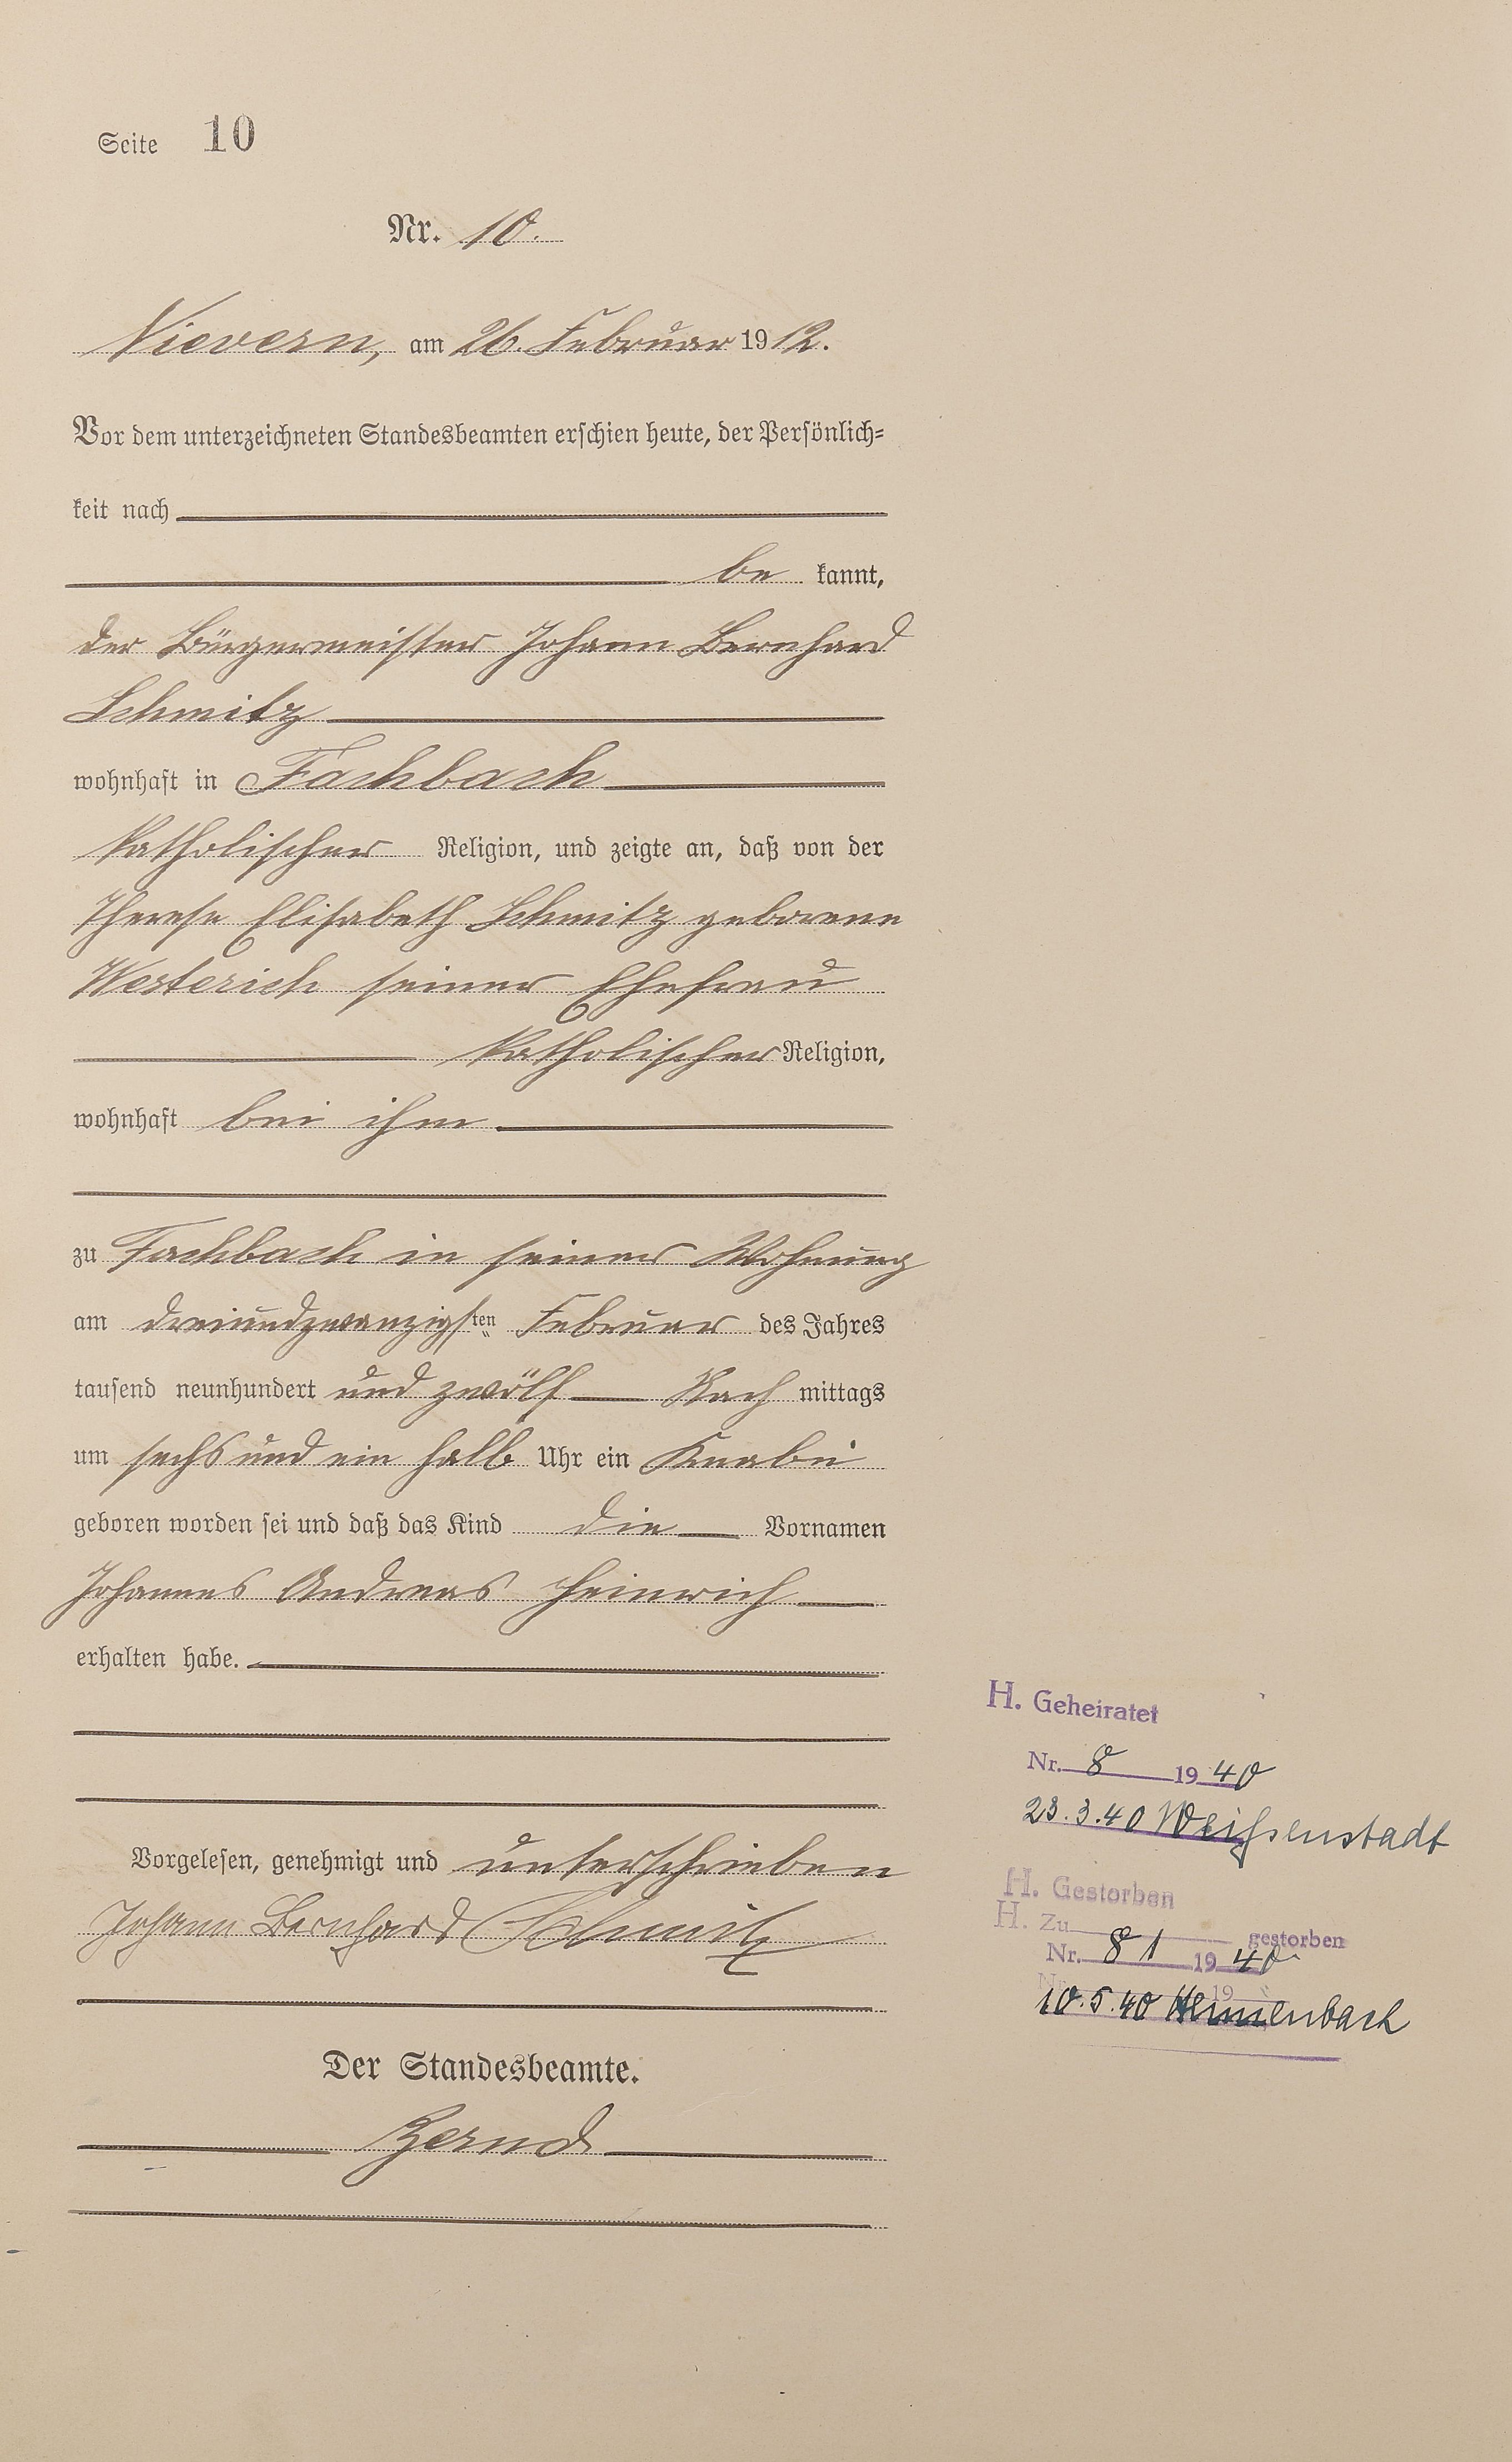 Seite 10
Nr. 10.
Nievern, am 26. Februar 1912.
Vor dem unterzeichneten Standesbeamten erschien heute, der Persönlich-
keit nach
be kannt,
der Bürgermeister Johann Bernhard
Schmitz
wohnhaft in Fachbach
katholischer Religion, und zeigte an, daß von der
Therese Elisabeth Schmitz geborene
Westerich seiner Ehefrau
katholischer Religion,
wohnhaft bei ihm
zu Fachbach in seiner Wohnung
am dreiundzwanzigsten Februar des Jahres
tausend neunhundert und zwölf Nach mittags
um sechs und ein halb Uhr ein Knabe
geboren worden sei und daß das Kind die Vornamen
Johannes Andreas Heinrich
erhalten habe.
Vorgelesen, genehmigt und unterschrieben
Johann Bernhard Schmitz
Der Standesbeamte.
H. Geheiratet
Nr. 8 1940
23.3.40 Weißenstadt
H. Gestorben
H. Zu gestorben
Nr. 81 1940
Nr. 19
10.5.40